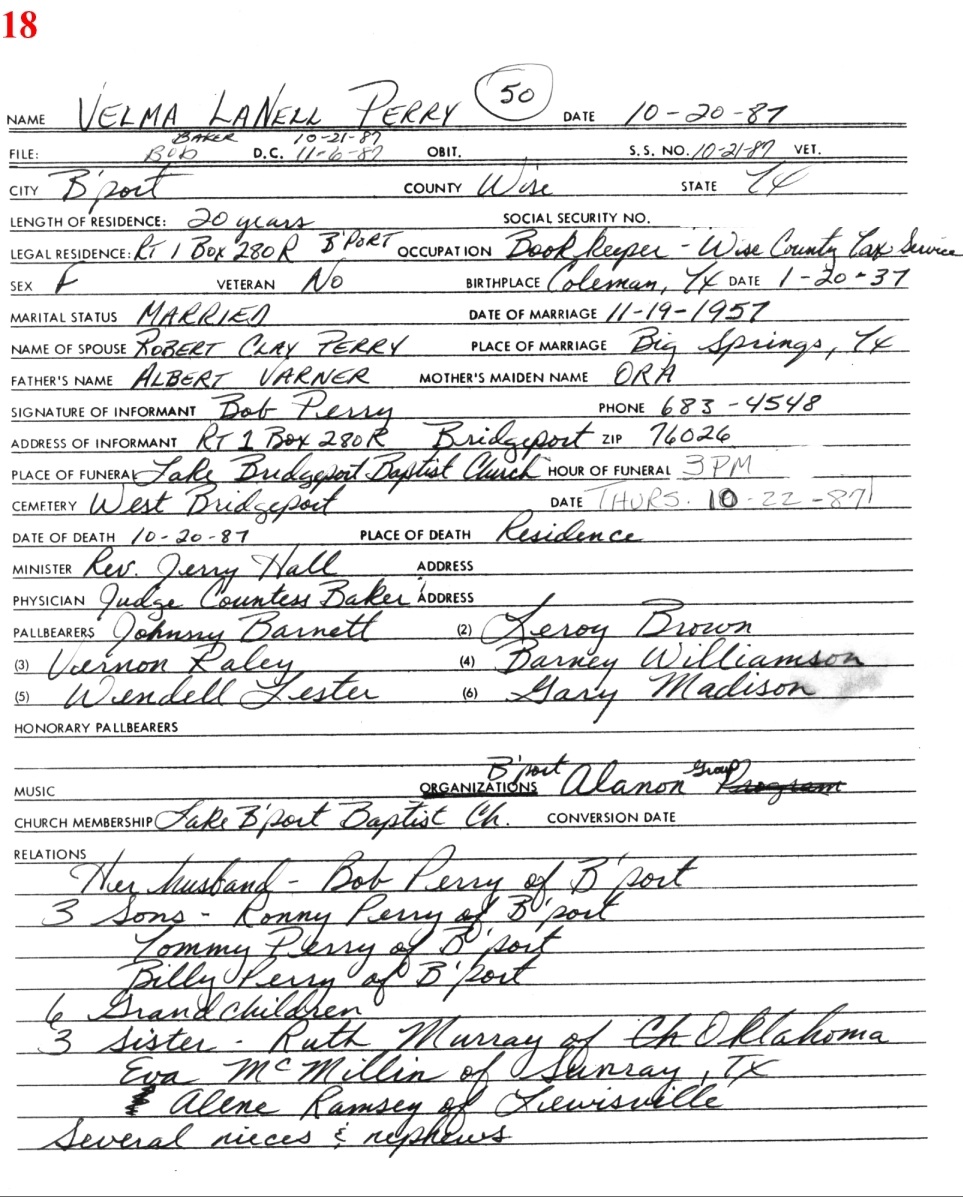 18
NAME VELMA LANELL PERRY 50 DATE 10-20-87
BAKER 10-21-87
FILE: BOB D.C. 11-6-87 OBIT. S.S. NO. 10-21-87 VET.
CITY B'port COUNTY Wise STATE TX
LENGTH OF RESIDENCE: 20 years SOCIAL SECURITY NO.
LEGAL RESIDENCE: RT 1 Box 280R B'PORT OCCUPATION Book keeper - Wise County Tax Service
SEX F VETERAN No BIRTHPLACE Coleman, TX DATE 1-20-37
MARITAL STATUS MARRIED DATE OF MARRIAGE 11-19-1957
NAME OF SPOUSE ROBERT CLAY PERRY PLACE OF MARRIAGE Big Springs, TX
FATHER'S NAME ALBERT VARNER MOTHER'S MAIDEN NAME ORA
SIGNATURE OF INFORMANT Bob Perry PHONE 683-4548
ADDRESS OF INFORMANT RT 1 Box 280R Bridgeport ZIP 76026
PLACE OF FUNERAL Lake Bridgeport Baptist Church HOUR OF FUNERAL 3 PM
CEMETERY West Bridgeport DATE THURS. 10-22-87
DATE OF DEATH 10-20-87 PLACE OF DEATH Residence
MINISTER Rev. Jerry Hall ADDRESS
PHYSICIAN Judge Countess Baker ADDRESS
PALLBEARERS Johnny Barnett (2) Leroy Brown
(3) Vernon Raley (4) Barney Williamson
(5) Wendell Lester (6) Gary Madison
HONORARY PALLBEARERS
B'port Group
MUSIC ORGANIZATIONS Alanon Program
CHURCH MEMBERSHIP Lake B'port Baptist Ch. CONVERSION DATE
RELATIONS
Her husband - Bob Perry of B'port
3 Sons - Ronny Perry of B'port
Tommy Perry of B'port
Billy Perry of B'port
6 Grandchildren
3 Sister - Ruth Murray of Ch Oklahoma
Eva McMillin of Sunray, TX
Alene Ramsey of Lewisville
Several nieces & nephews